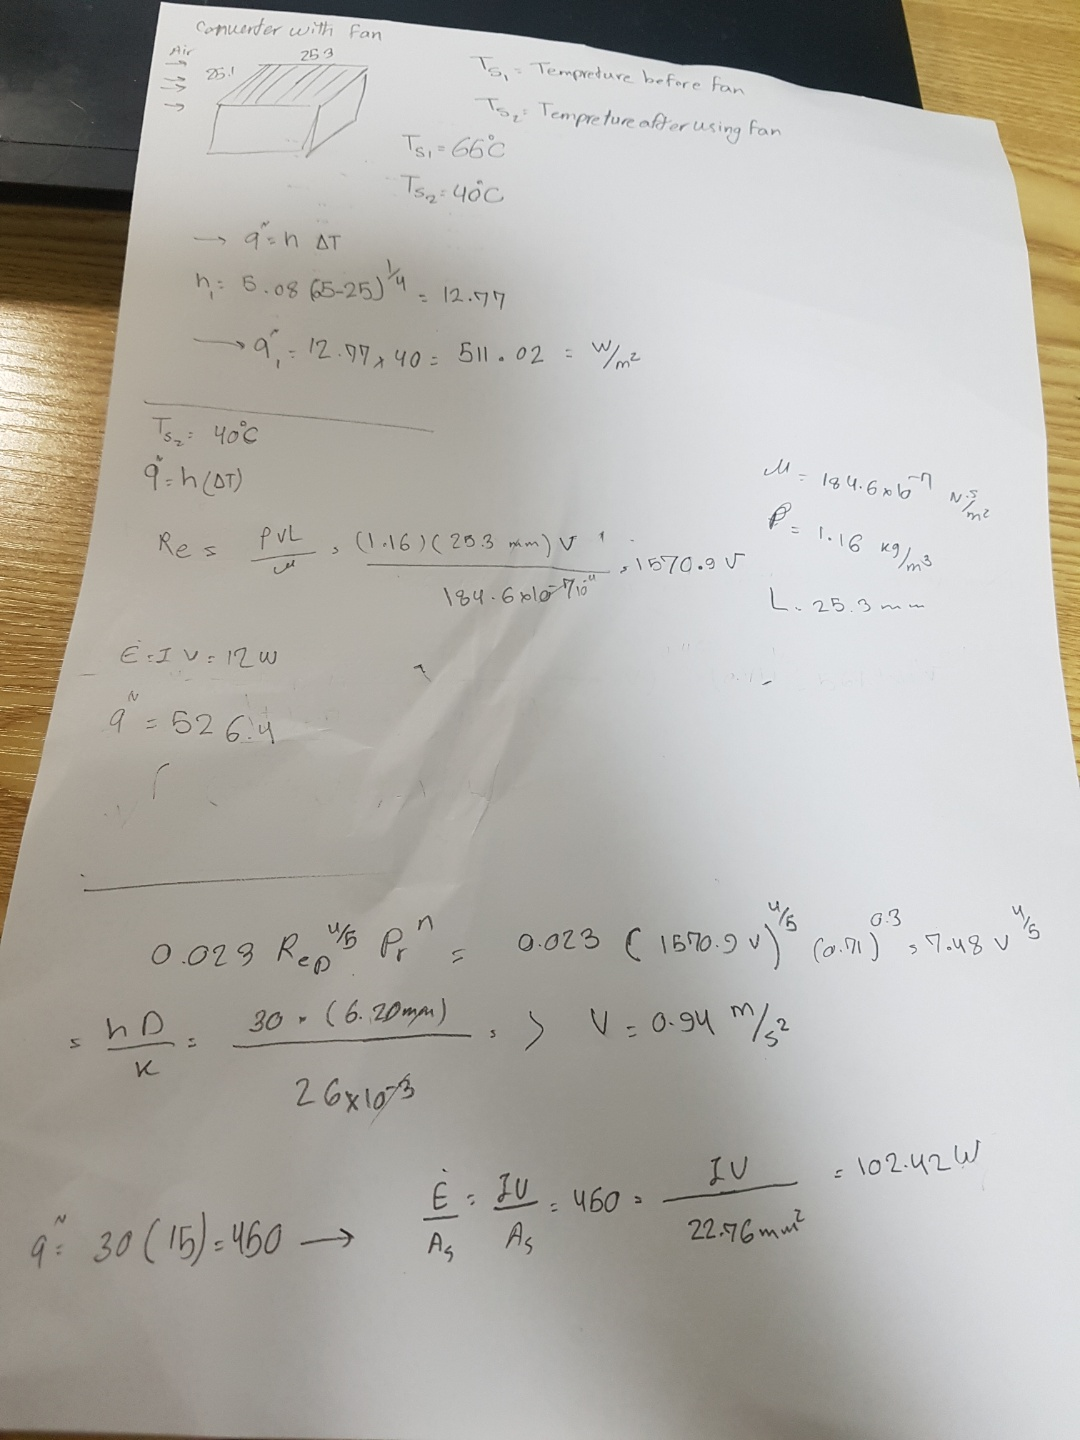 Converter with fan
Air
25.1
25.3
Ts₁ = Tempreture before fan
Ts₂ = Tempreture after using fan
Ts₁ = 66°C
Ts₂ = 40°C
→ q̃ = h ΔT
h₁ = 5.08 (65-25)^1/4 = 12.77
→ q̃₁ = 12.77 × 40 = 511.02 = W/m²
Ts₂ = 40°C
q̃ = h(ΔT)
μ = 184.6×10⁻⁷ N.S/m²
ρ = 1.16 kg/m³
L = 25.3 mm
Re = ρVL/μ = (1.16)(25.3 mm) V / 184.6×10⁻⁷ = 1570.9 V
Ė = I V = 12 W
q̃ = 526.4
0.023 Re_D^4/5 Pr^n = 0.023 (1570.9 V)^4/5 (0.71)^0.3 = 7.48 V^4/5
= hD/K = 30 × (6.20mm) / 26×10⁻³ => V = 0.94 m/s²
q̃ = 30(15) = 450 → Ė/As = IV/As = 450 = IV / 22.76 mm² = 102.42 W